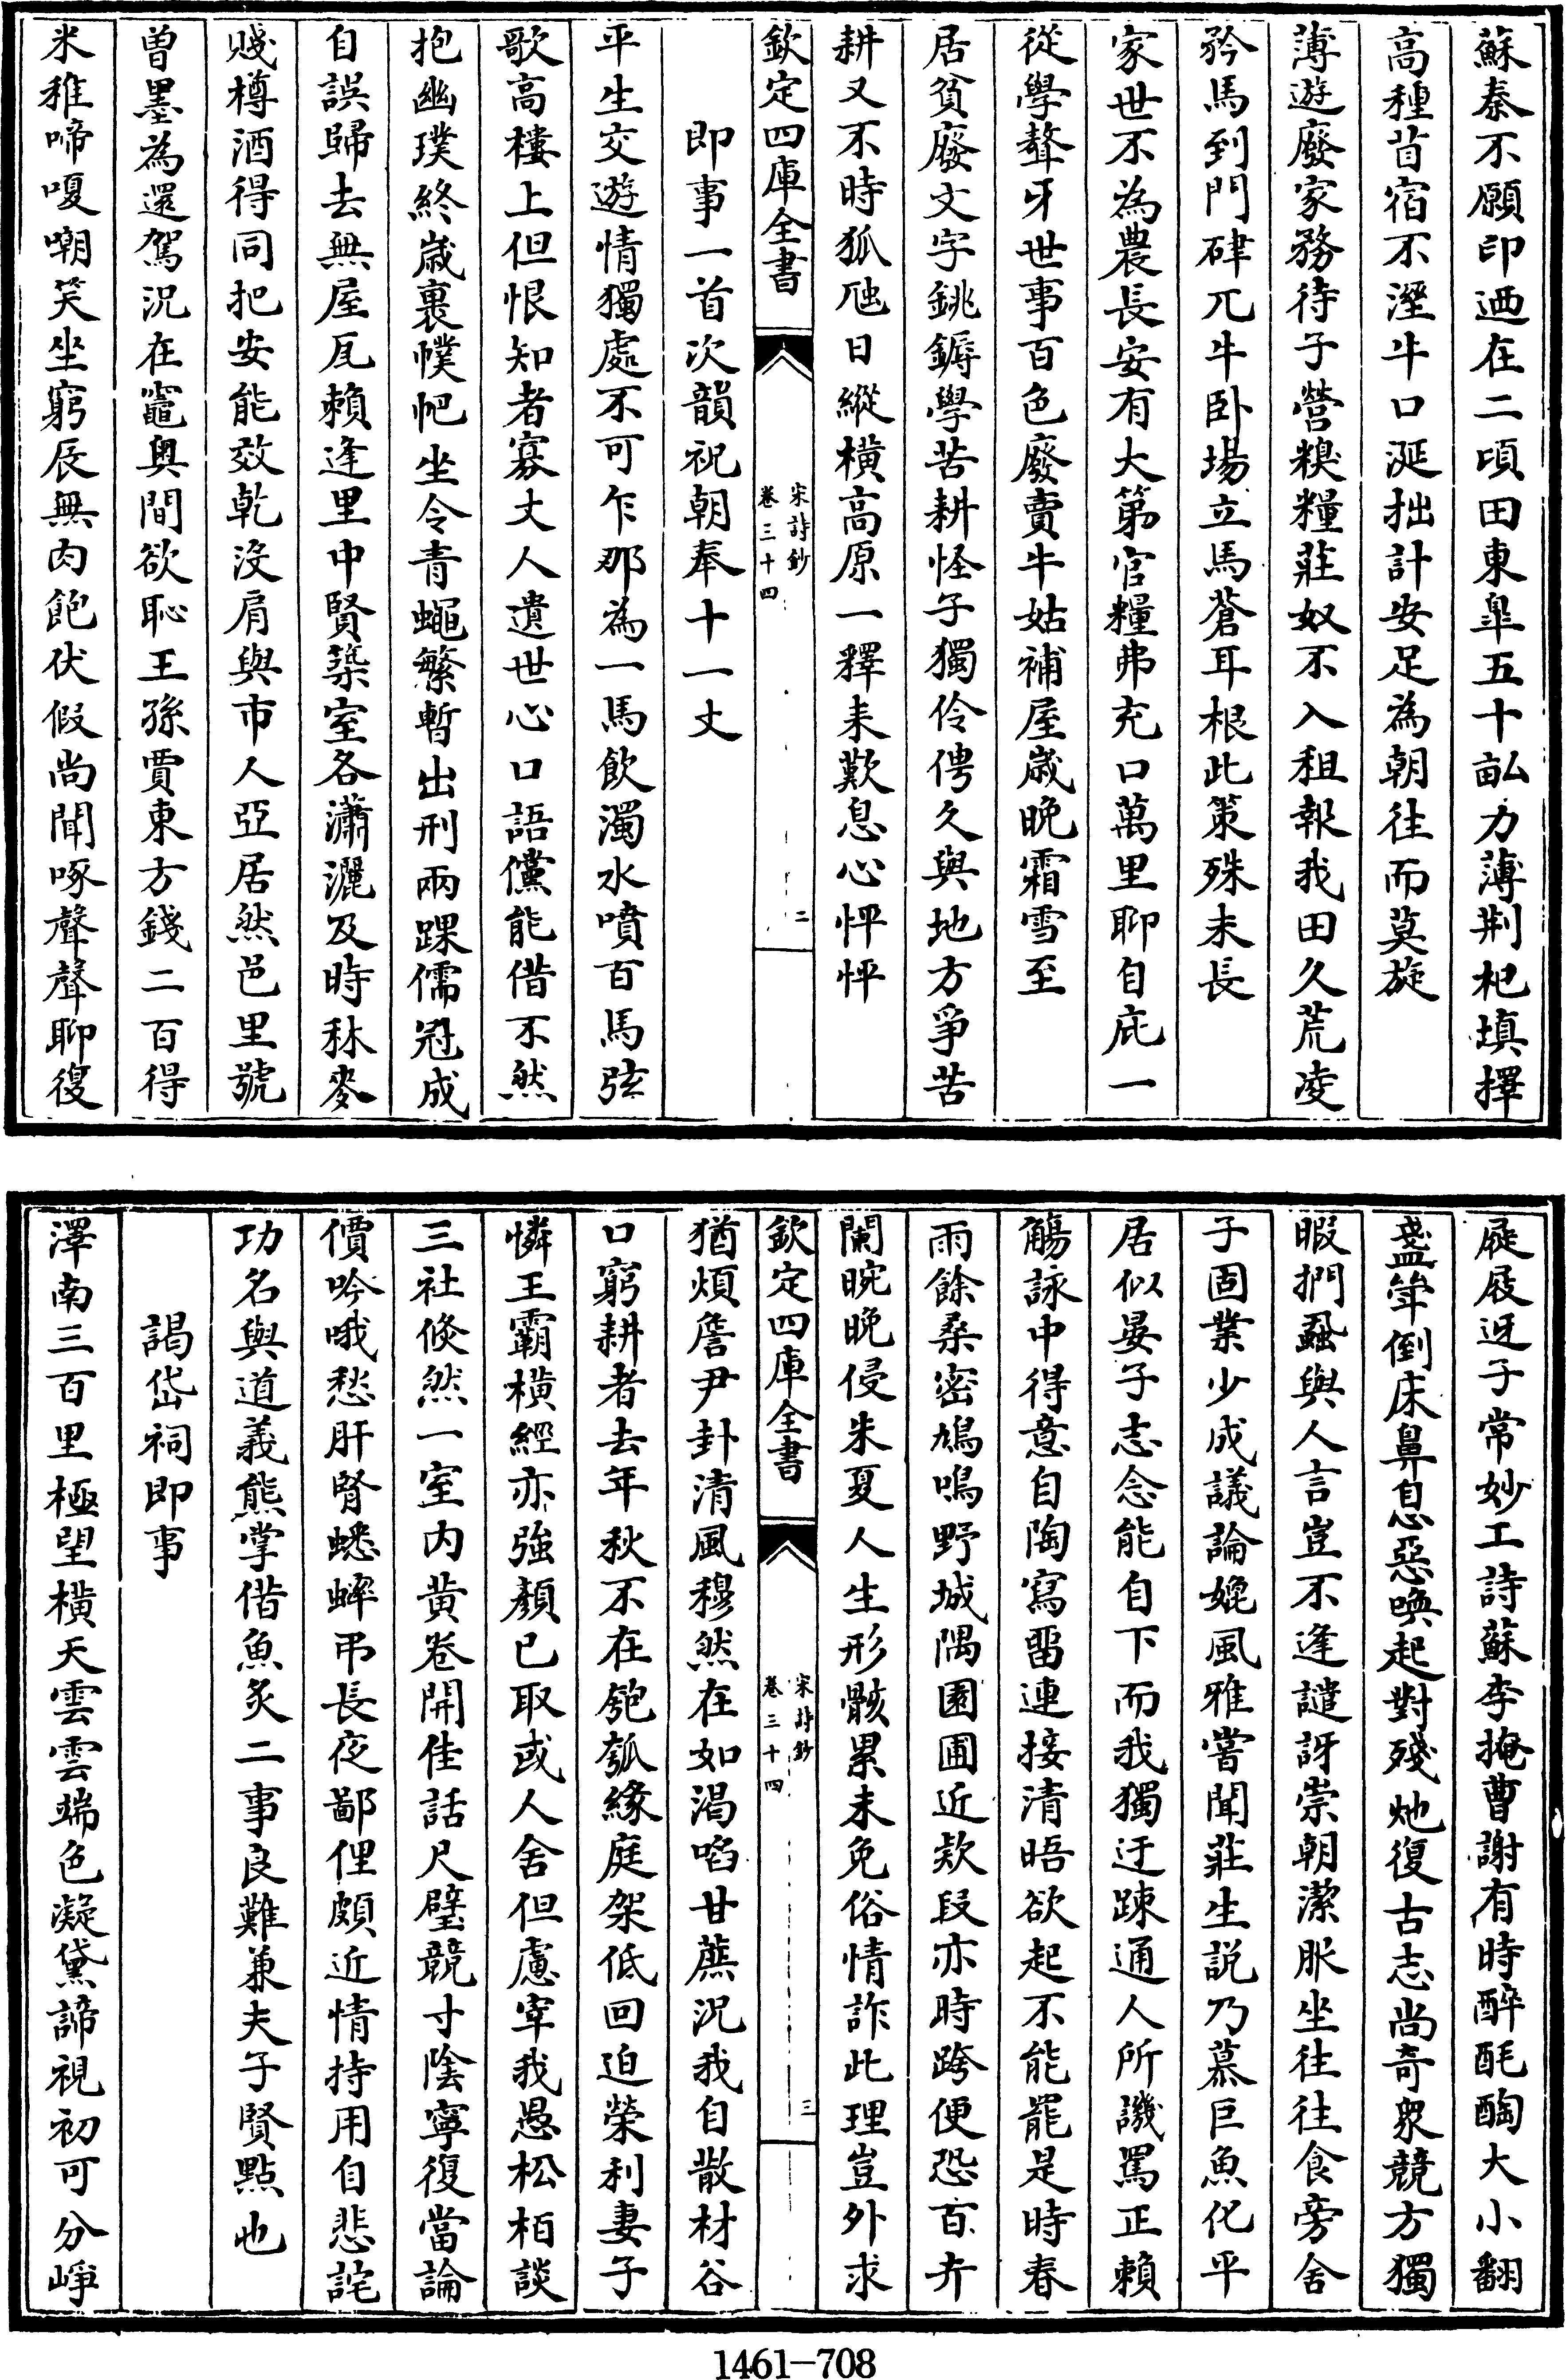 蘇秦不願印迺在二頃田東臯五十畆力薄荆杞填擇
高種苜宿不溼牛口涎拙計安足為朝往而莫旋
薄遊廢家務待子營糗糧莊奴不入租報我田久荒凌
矜馬到門硉兀牛卧場立馬蒼耳根此策殊未長
家世不為農長安有大第官糧弗充口萬里聊自庇一
從學聱牙世事百色廢賣牛姑補屋歲晚霜雪至
居貧廢文字銚鎒學苦耕怪子獨伶俜久與地方爭苦
耕又不時狐虺日縱橫高原一釋耒歎息心怦怦
欽定四庫全書
宋詩鈔
卷三十四
二
即事一首次韻祝朝奉十一丈
平生交遊情獨處不可乍那為一馬飲濁水噴百馬弦
歌高樓上但恨知者寡丈人遺世心口語儻能借不然
抱幽璞終歲裹幞帊坐令青蠅繁暫出刑兩踝儒冠成
自誤歸去無屋瓦賴逢里中賢築室各瀟灑及時秫麥
賤樽酒得同把安能效乾沒肩與市人亞居然邑里號
曽墨為還駕況在竈奥間欲恥王孫賈東方錢二百得
米稚啼嗄嘲笑坐窮辰無肉飽伏假尚聞啄聲聲聊復
屣屐迓子常妙工詩蘇李掩曹謝有時醉酕醄大小翻
盞斝倒床鼻息惡喚起對殘灺復古志尚奇衆競方獨
暇捫蝨與人言豈不逢譴訝崇朝潔脤坐往往食旁舍
子固業少成議論媲風雅嘗聞莊生説乃慕巨魚化平
居似晏子志念能自下而我獨迂踈通人所譏罵正賴
觴詠中得意自陶寫留連接清晤欲起不能罷是時春
雨餘桑密鳩鳴野城隅園圃近欵段亦時跨便恐百卉
闌晼晚侵朱夏人生形骸累未免俗情詐此理豈外求
欽定四庫全書
宋詩鈔
卷三十四
三
猶煩詹尹卦清風穆然在如渴啗甘蔗況我自散材谷
口窮耕者去年秋不在匏瓠緣庭架低回迫榮利妻子
憐王霸横經亦強顏已取或人舍但慮宰我愚松柏談
三社倐然一室内黄卷開佳話尺璧競寸陰寧復當論
價吟哦愁肝腎蟋蟀弔長夜鄙俚頗近情持用自悲詫
功名與道義熊掌偕魚炙二事良難兼夫子賢點也
謁岱祠即事
澤南三百里極望横天雲雲端色凝黛諦視初可分崢
1461—708